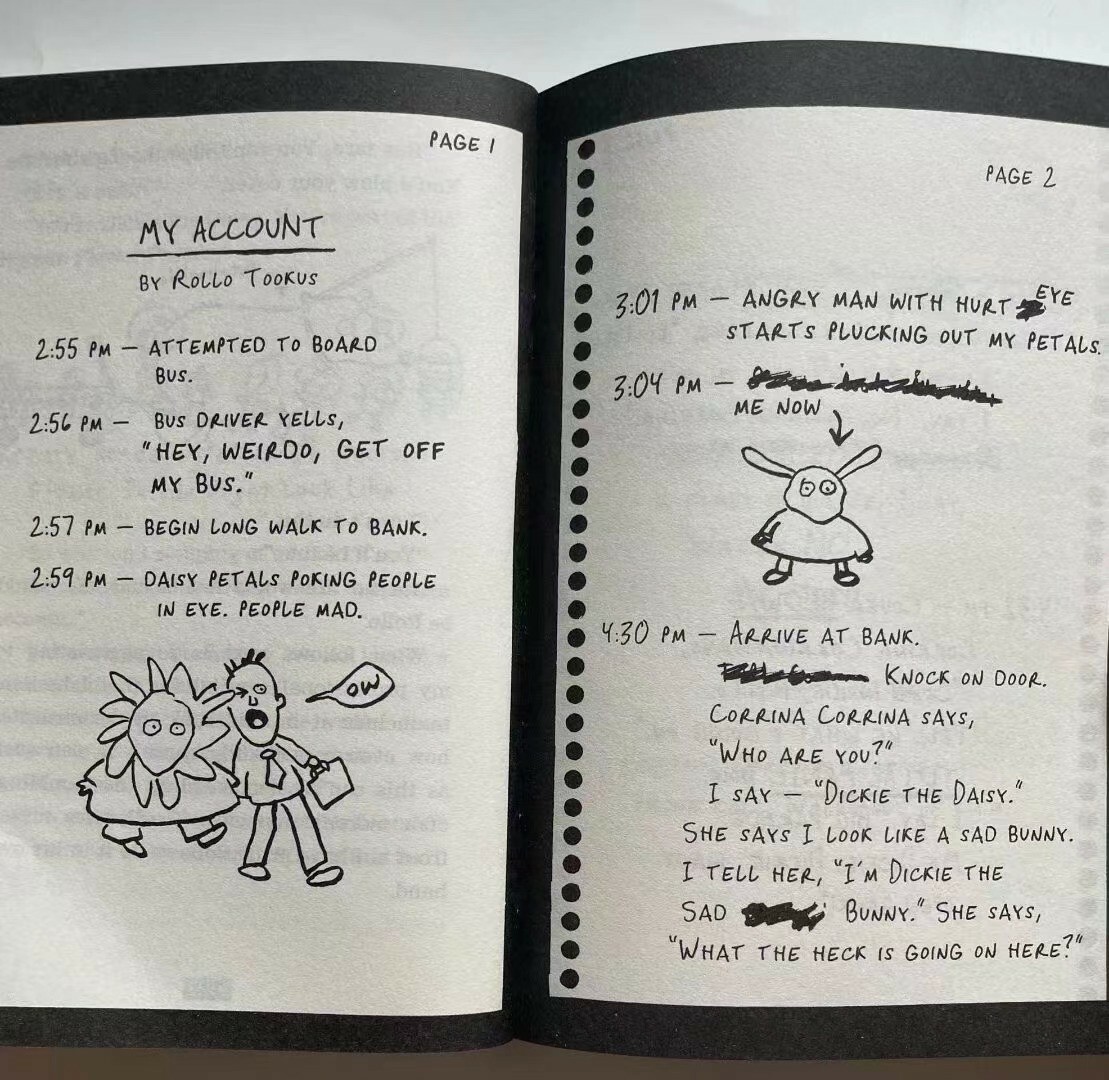 PAGE 1
MY ACCOUNT
BY ROLLO TOOKUS
2:55 PM — ATTEMPTED TO BOARD
BUS.
2:56 PM — BUS DRIVER YELLS,
"HEY, WEIRDO, GET OFF
MY BUS."
2:57 PM — BEGIN LONG WALK TO BANK.
2:59 PM — DAISY PETALS POKING PEOPLE
IN EYE. PEOPLE MAD.
OW
PAGE 2
3:01 PM — ANGRY MAN WITH HURT EYE
STARTS PLUCKING OUT MY PETALS.
3:04 PM —
ME NOW
4:30 PM — ARRIVE AT BANK.
KNOCK ON DOOR.
CORRINA CORRINA SAYS,
"WHO ARE YOU?"
I SAY — "DICKIE THE DAISY."
SHE SAYS I LOOK LIKE A SAD BUNNY.
I TELL HER, "I'M DICKIE THE
SAD BUNNY." SHE SAYS,
"WHAT THE HECK IS GOING ON HERE?"